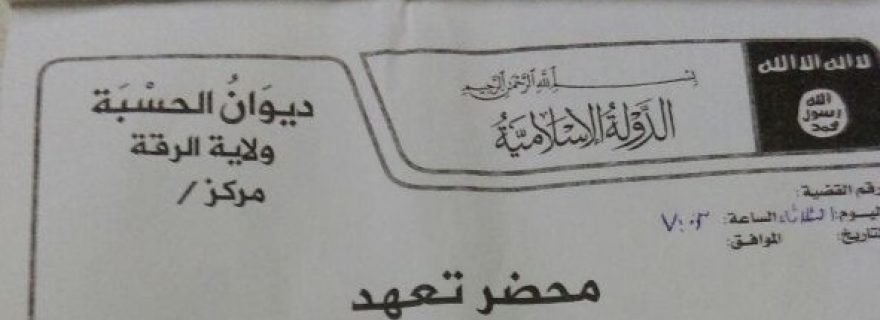 لا اله الا الله
الله
رسول
محمد
بسم الله الرحمن الرحيم
الدَّوْلَةُ الإِسْلَامِيَّةُ
ديوَانُ الحسْبَة
ولاية الرقة
مركز /
رقم القضية:
اليوم: الثلاثاء الساعة: ٧:٠٣
التاريخ: الموافق:
محضر تعهد